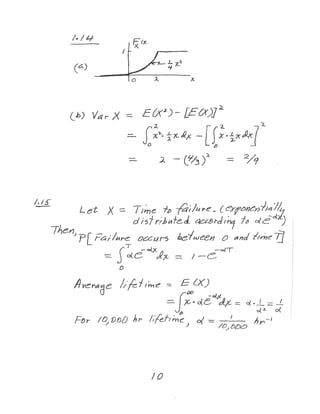 1.14
F_X(x
1
(a)
1/4 x²
0 2 x
(b) Var X = E(X²) - [E(X)]²
= ∫₀² x²·½x dx - [∫₀² x·½x dx]²
= 2 - (4/3)² = 2/9
1.15
Let X = Time to failure. (exponentially
distributed according to αe^(-αx))
Then,
P[Failure occurs between 0 and time T]
= ∫₀ᵀ αe^(-αx) dx = 1 - e^(-αT)
Average lifetime = E(X)
= ∫₀^∞ x·αe^(-αx) dx = α·1/α² = 1/α
For 10,000 hr lifetime, α = 1/10,000 hr⁻¹
10